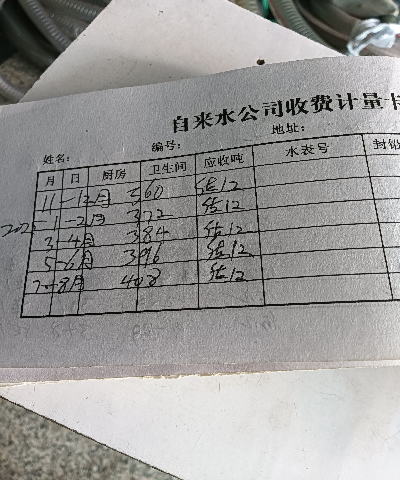 自来水公司收费计量卡
姓名： 编号： 地址：
月 日 厨房 卫生间 应收吨 水表号 封铅
11-12月 360 估12
2022 1-2月 372 估12
3-4月 384 估12
5-6月 396 估12
7-8月 408 估12